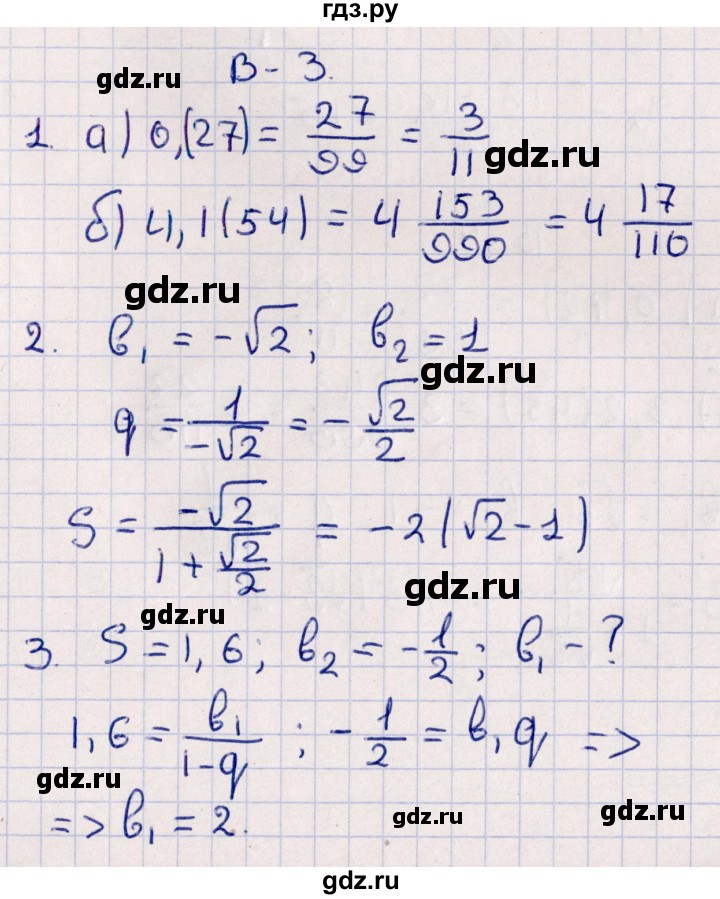 гдз.ру
gdz.ru
В - 3.
1. а) 0,(27) = 27/99 = 3/11
gdz.ru
б) 4,1(54) = 4 153/990 = 4 17/110
gdz.ru
2. b₁ = -√2; b₂ = 1
gdz.ru
q = 1/-√2 = - √2/2
S = -√2/(1 + √2/2) = -2(√2 - 1)
gdz.ru
gdz.ru
3. S = 1,6; b₂ = - 1/2; b₁ - ?
1,6 = b₁/(1-q); - 1/2 = b₁q =>
gdz.ru
=> b₁ = 2.
gdz.ru
gdz.ru
gdz.ru